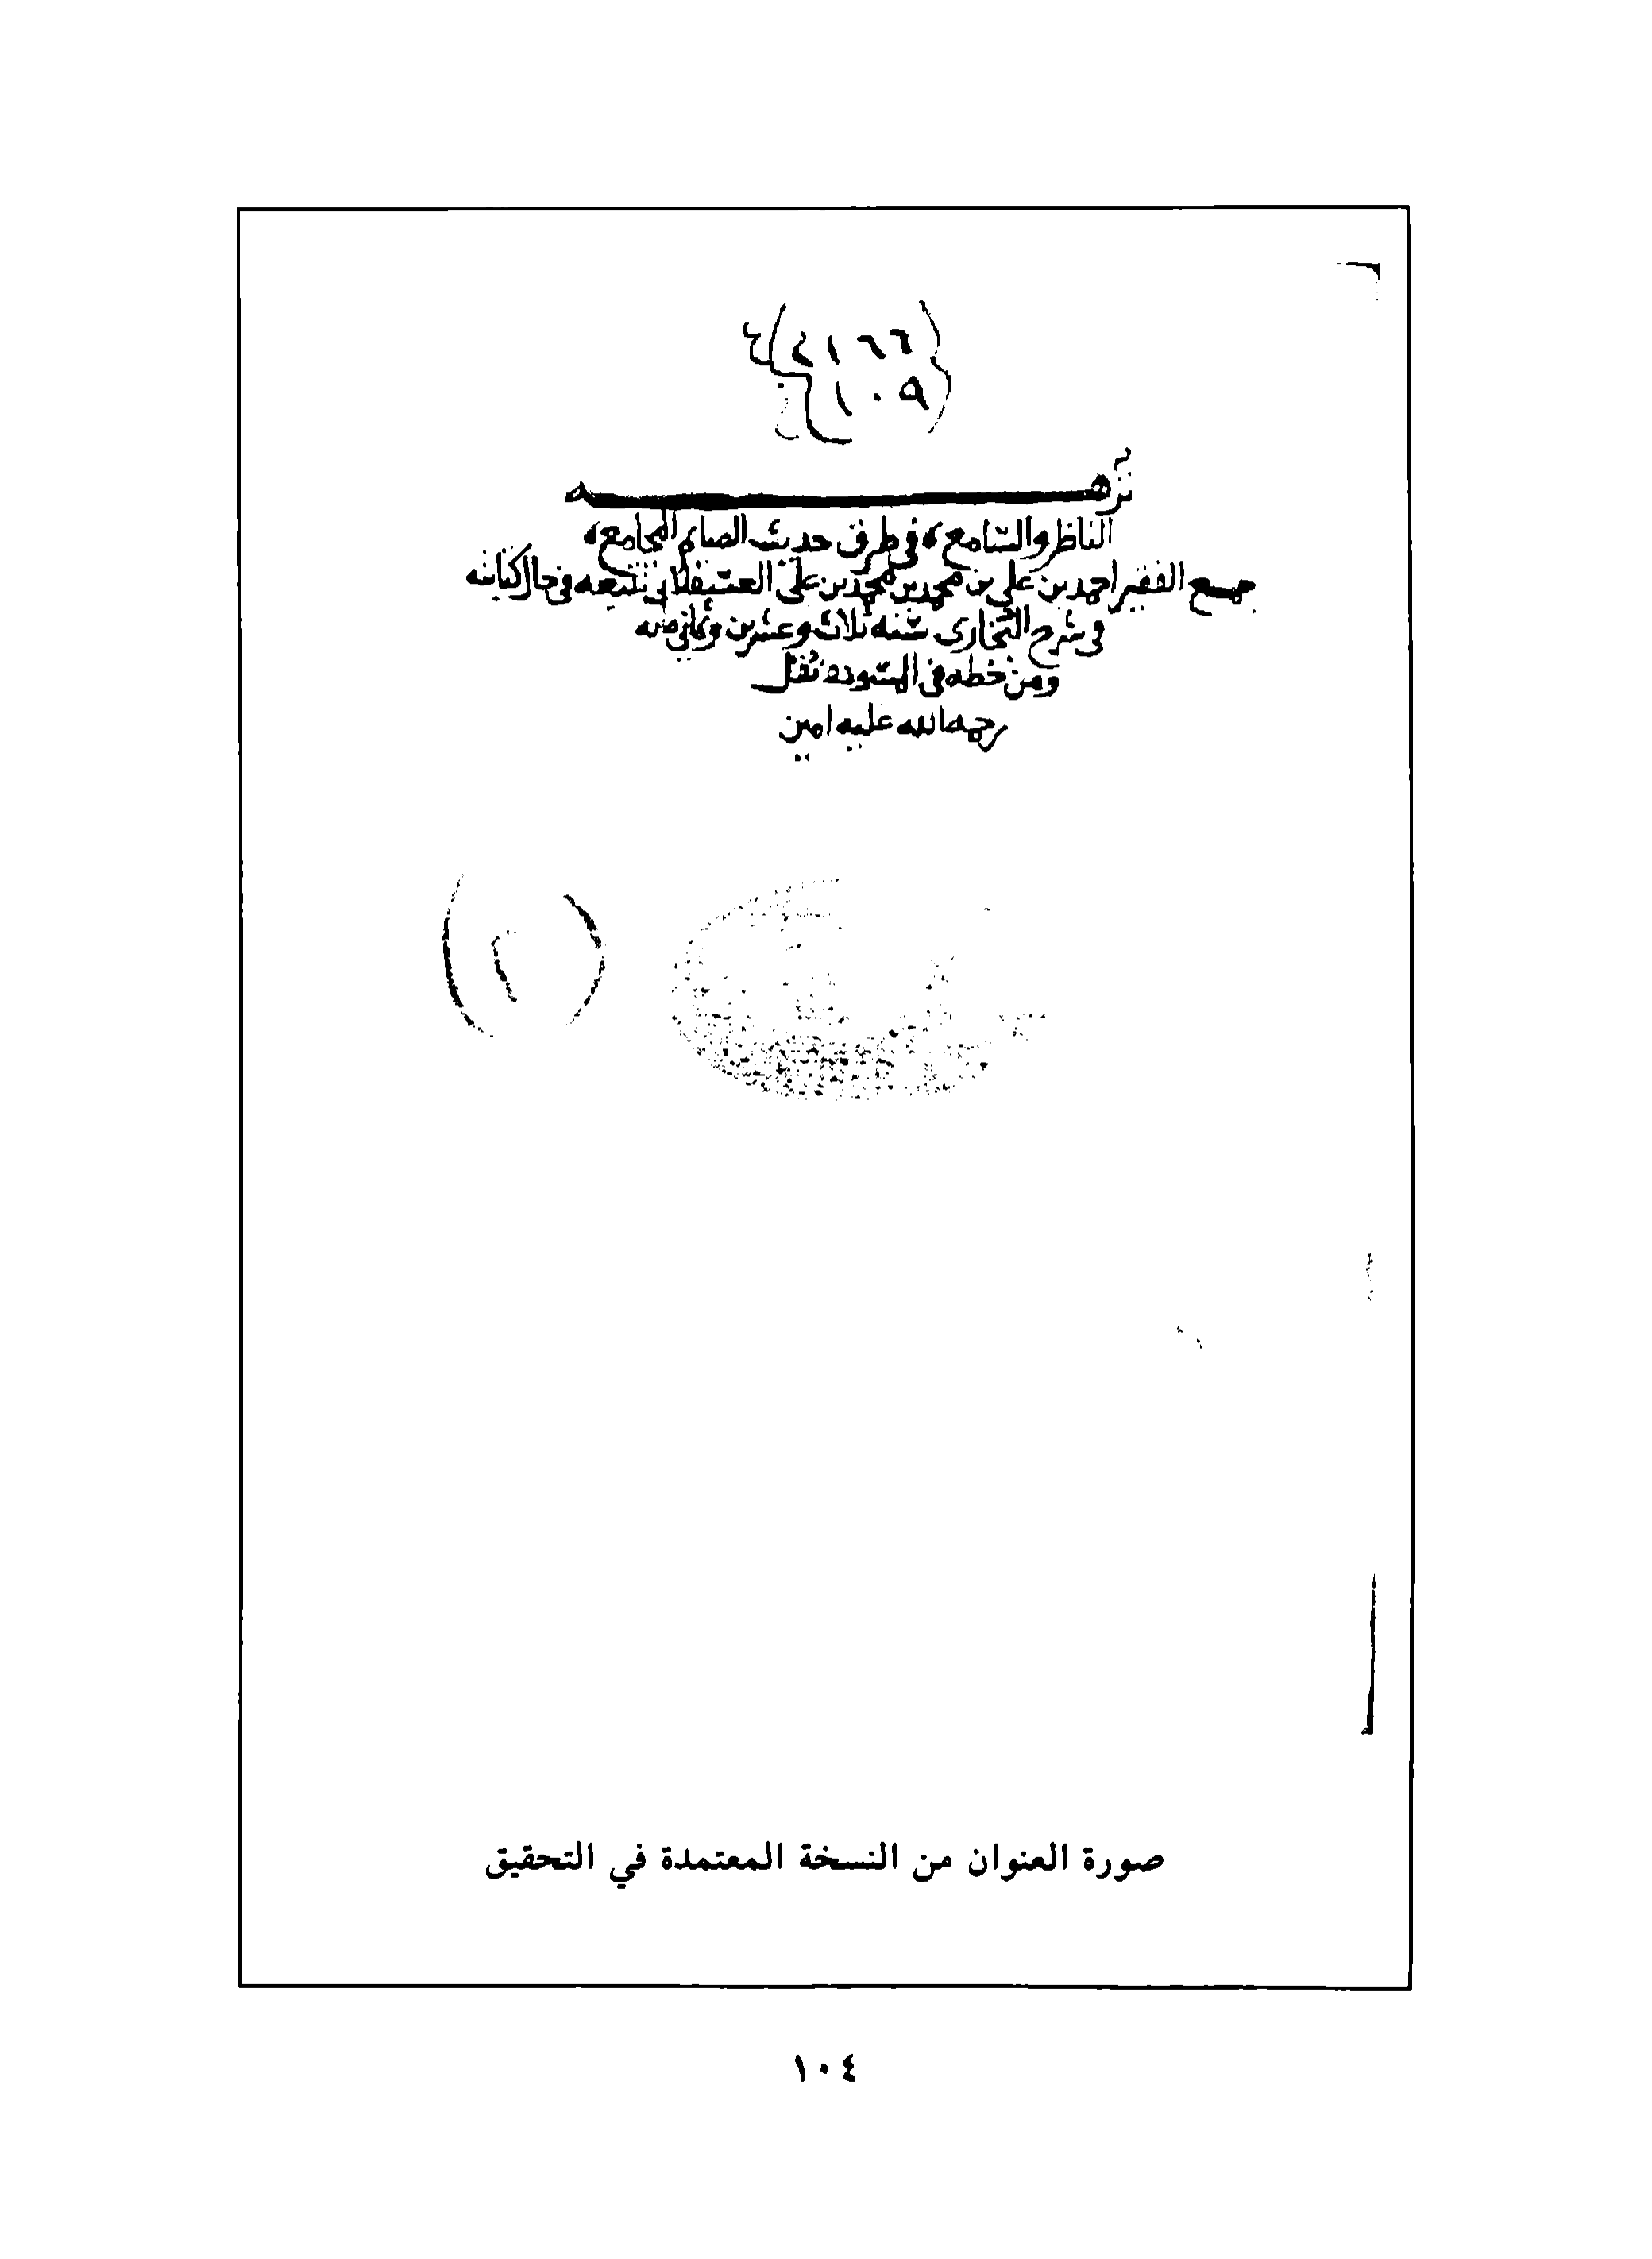 ٤١٦٦
١٠٩
نزهه
الناظر والسّامع، في طرق حديث الصايم المجامع،
جمع الفقير احمد بن علي بن محمد بن محمد بن علي العسقلاني تتبعه في حال كتابته
في شرح البخاري سنه ثلاث وعشرين وثماني مايه
ومن خطه في المسوده نُقل
رحمه الله عليه امين
(٢)
صورة العنوان من النسخة المعتمدة في التحقيق
١٠٤